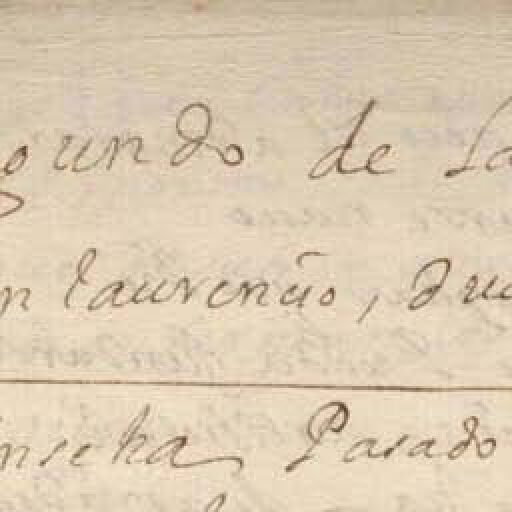 gundo de La
n laurencio, du
inseha Pasado